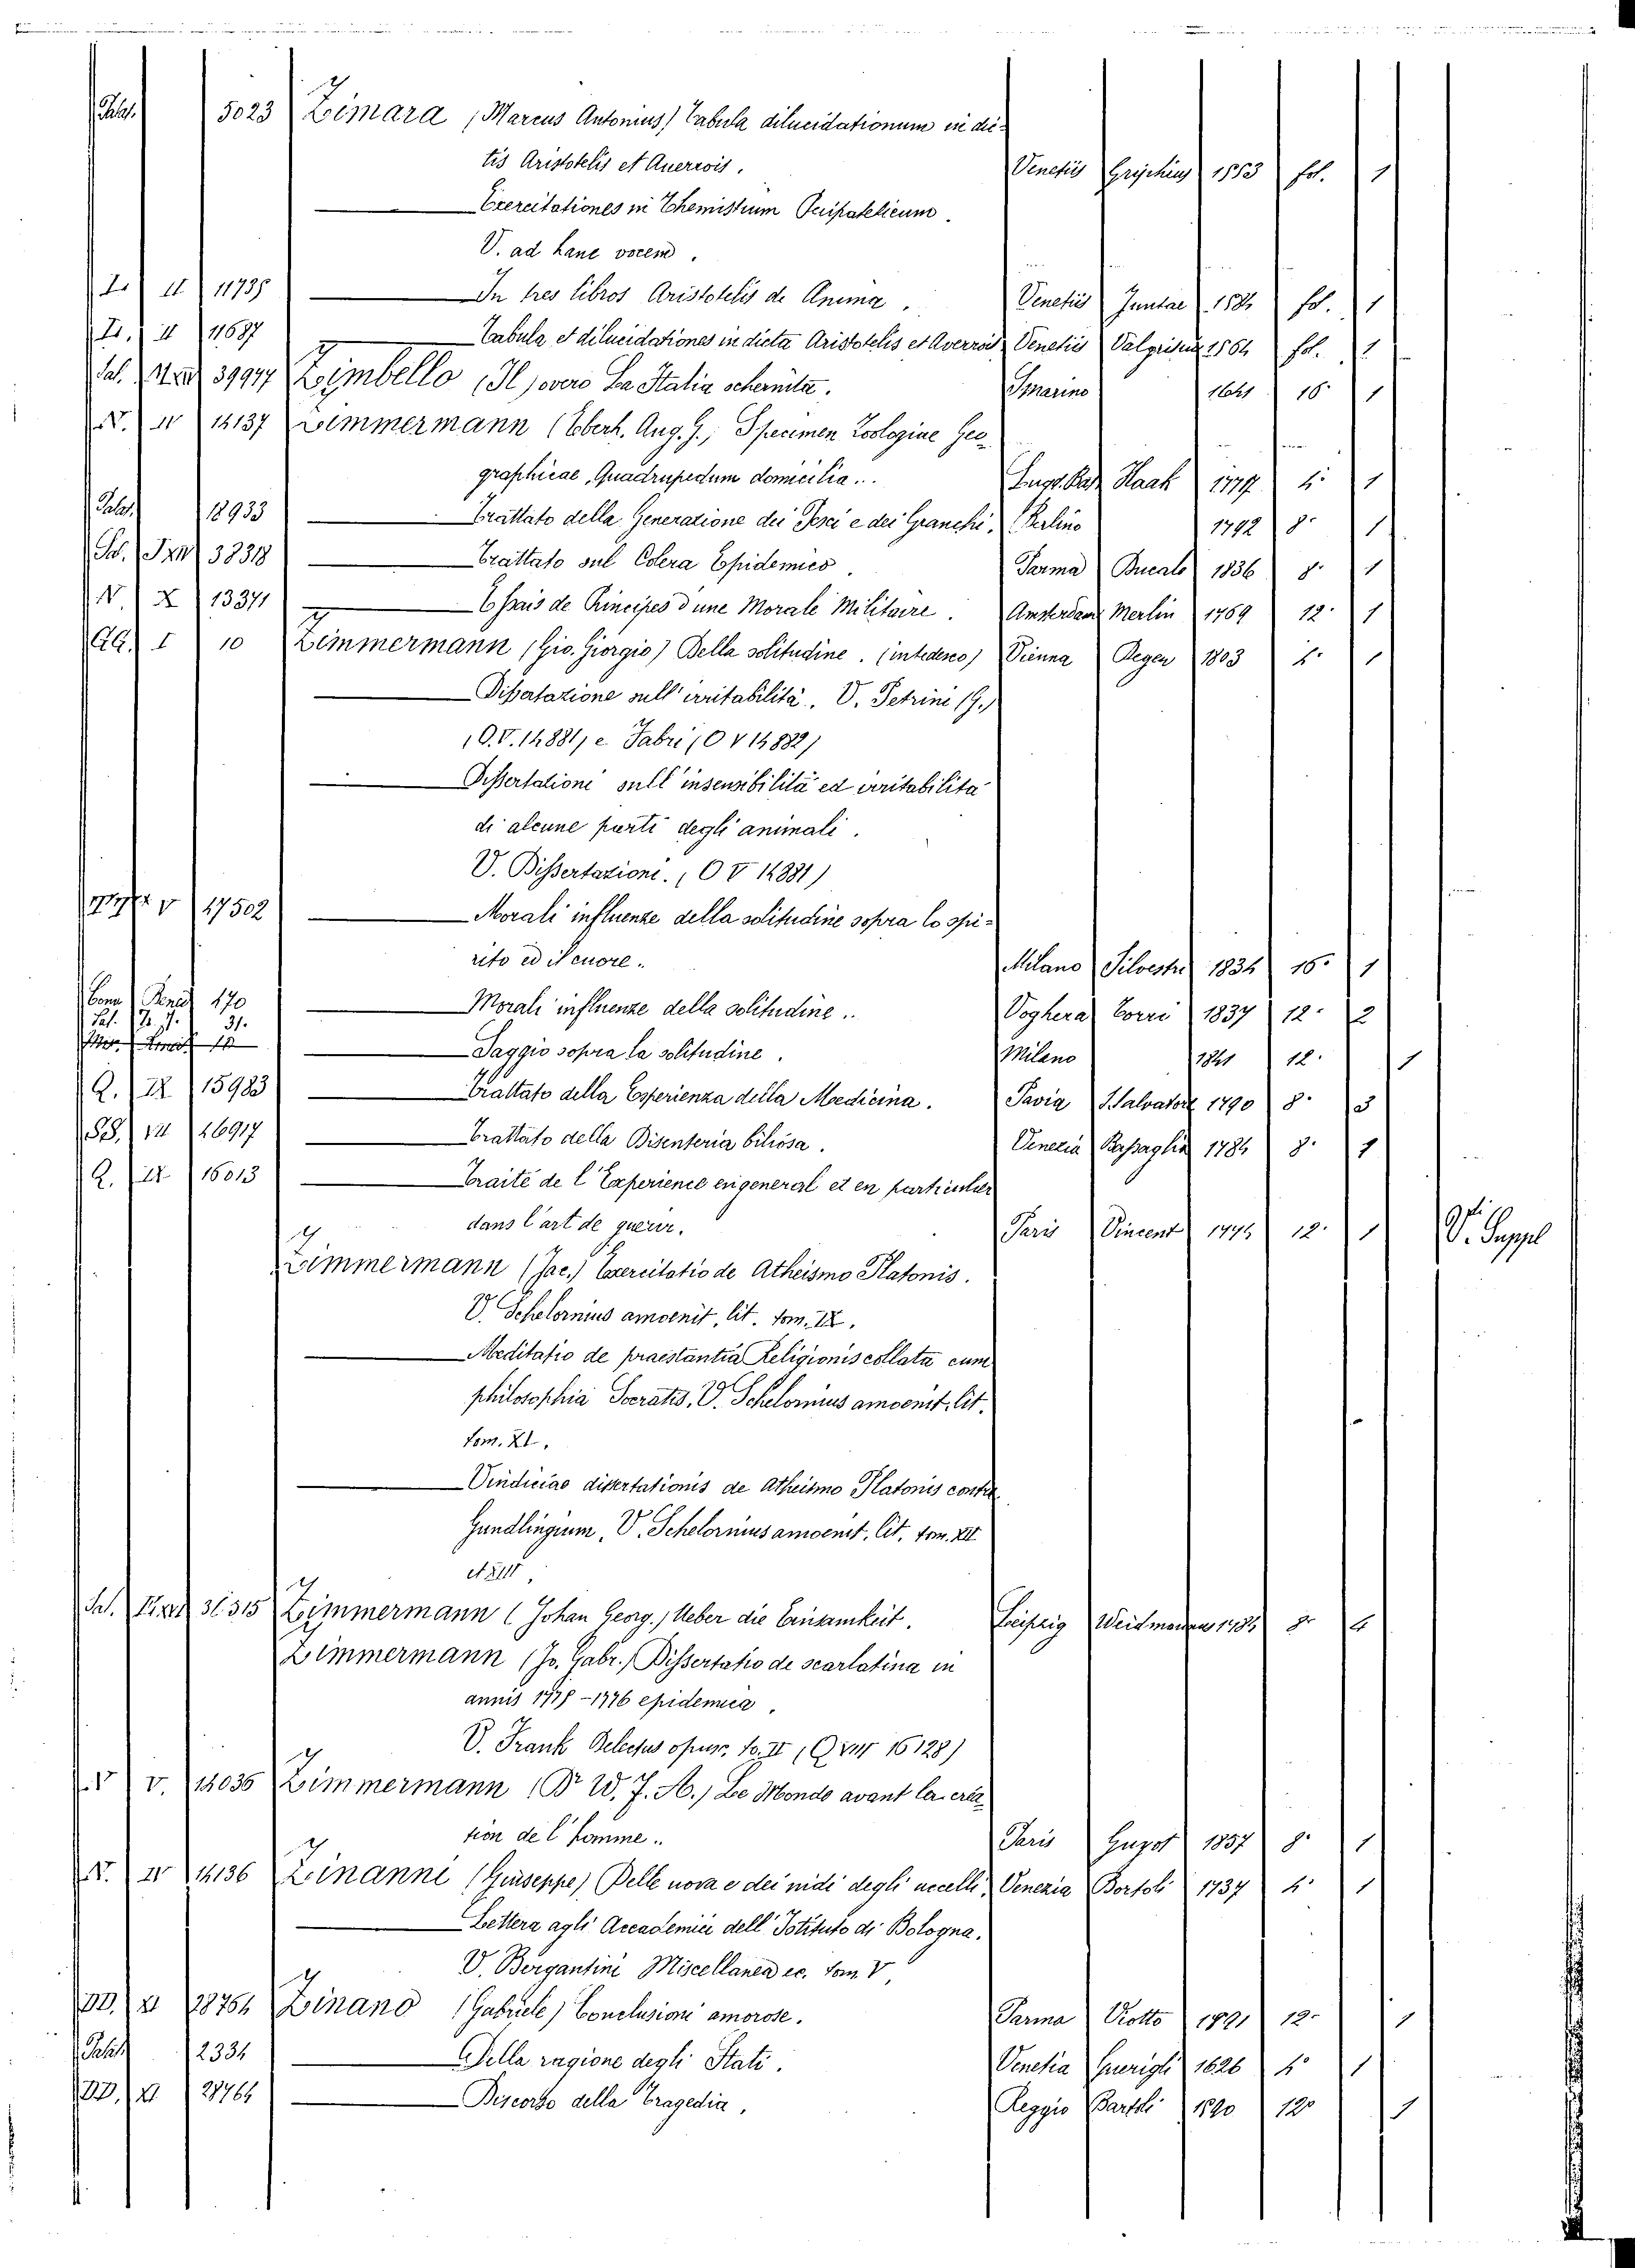 5023 Zimara (Marcus Antonius) Tabula dilucidationum in dic-
tis Aristotelis et Averrois. Venetiis Gryphius 1553 fol. 1
Exercitationes in Themistium Peripateticum.
V. ad hanc vocem.
II 11735 In tres libros Aristotelis de Anima. Venetiis Juntae fol. 1
II 11687 Tabula et dilucidationes in dicta Aristotelis et Averrois Venetiis Valgrisius 1564 fol. 1
Sal. 39947 Zimbello (Il) overo La Italia schernita. Smarino 1641 16° 1
N. IV 14137 Zimmermann (Eberh. Aug. G.) Specimen Zoologiae Geo-
graphicae, Quadrupedum domicilia.. Lugd. Bat. Haak 1777 4° 1
Palat. 12933 Trattato della Generazione dei Pesci e dei Granchi. Berlino 1792 8° 1
38318 Trattato sul Colera Epidemico. Parma Ducale 1836 8° 1
N. X 13371 Essais de Principes d'une Morale Militaire. Amsterdam Merlin 1769 12° 1
I 10 Zimmermann (Gio. Giorgio) Della solitudine. (in tedesco) Vienna Degen 1803 4° 1
Dissertazione sull'irritabilità. V. Petrini (G.)
(O. V. 14881) e Fabri (O V 14882)
Dissertationi sull'insensibilità ed irritabilita
di alcune parti degli animali.
V. Dissertazioni. (O V 14881)
V 17502 Morali influenze della solitudine sopra lo spi-
rito ed il cuore. Milano Silvestri 1834 16° 1
170 Morali influenze della solitudine.. Voghera Torri 1837 12° 2
31.
Saggio sopra la solitudine. Milano 1841 12. 1
Q. IX 15983 Trattato della Esperienza della Medicina. Pavia S. Salvatore 1790 8° 3
SS. VII 26917 Trattato della Disenteria biliosa. Venezia Bassaglia 1784 8. 1
Q. IX 16013 Traité de l'Experience en general et en particulier
dans l'art de guerir. Paris Vincent 1774 12. 1 V. Suppl
Zimmermann (Jac.) Exercitatio de Atheismo Platonis.
V. Schelornius amoenit. lit. tom. IX.
Meditatio de praestantia Religionis collata cum
philosophia Socratis, V. Schelornius amoenit. lit.
tom. XI.
Vindiciae dissertationis de Atheismo Platonis contra
Gundlingium, V. Schelornius amoenit. lit. tom. XII
et XIII.
Sal. 36315 Zimmermann (Johan Georg.) Ueber die Einsamkeit. Leipzig 8° 4
Zimmermann (Jo. Gabr.) Dissertatio de scarlatina in
annis 1775-1776 epidemica.
V. Frank Delectus opusc. to. II (Q VIII 16128)
V V. 14035 Zimmermann (Dr W. F. A.) Le Monde avant la créa-
tion de l'homme.. Paris Guyot 1857 8° 1
N. IV 14136 Zinanni (Giuseppe) Delle uova e dei nidi degli uccelli. Venezia Bortoli 1737 4° 1
Lettera agli Accademici dell'Istituto di Bologna.
V. Bergantini Miscellanea ec. tom. V.
DD. XI 28764 Zinano (Gabriele) Conclusioni amorose. Parma Viotto 1591 12° 1
Palat. 2334 Della ragione degli Stati. Venetia Guerigli 1626 4° 1
DD. XI 28764 Discorso della Tragedia. Reggio Bartoli 1590 12° 1